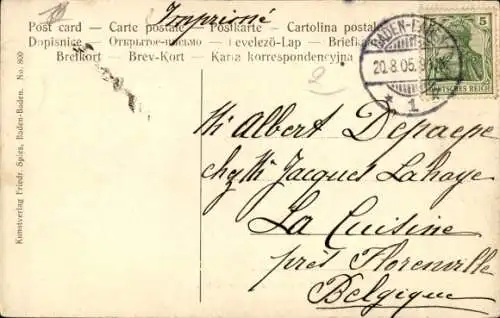 Imprimé
Post card — Carte postale — Postkarte — Cartolina postale
Dopisnice — Открытое письмо — Levelező-Lap — Briefkaart
Brefkort — Brev-Kort — Karta korrespondencyjna
5 5
DEUTSCHES REICH
BADEN-BADEN
20.8.05.
* 1
2
Mr Albert Depaepe
chez Mr Jacques Lahaye
La Cuisine
près Florenville
Belgique
Kunstverlag Friedr. Spies, Baden-Baden. No. 800